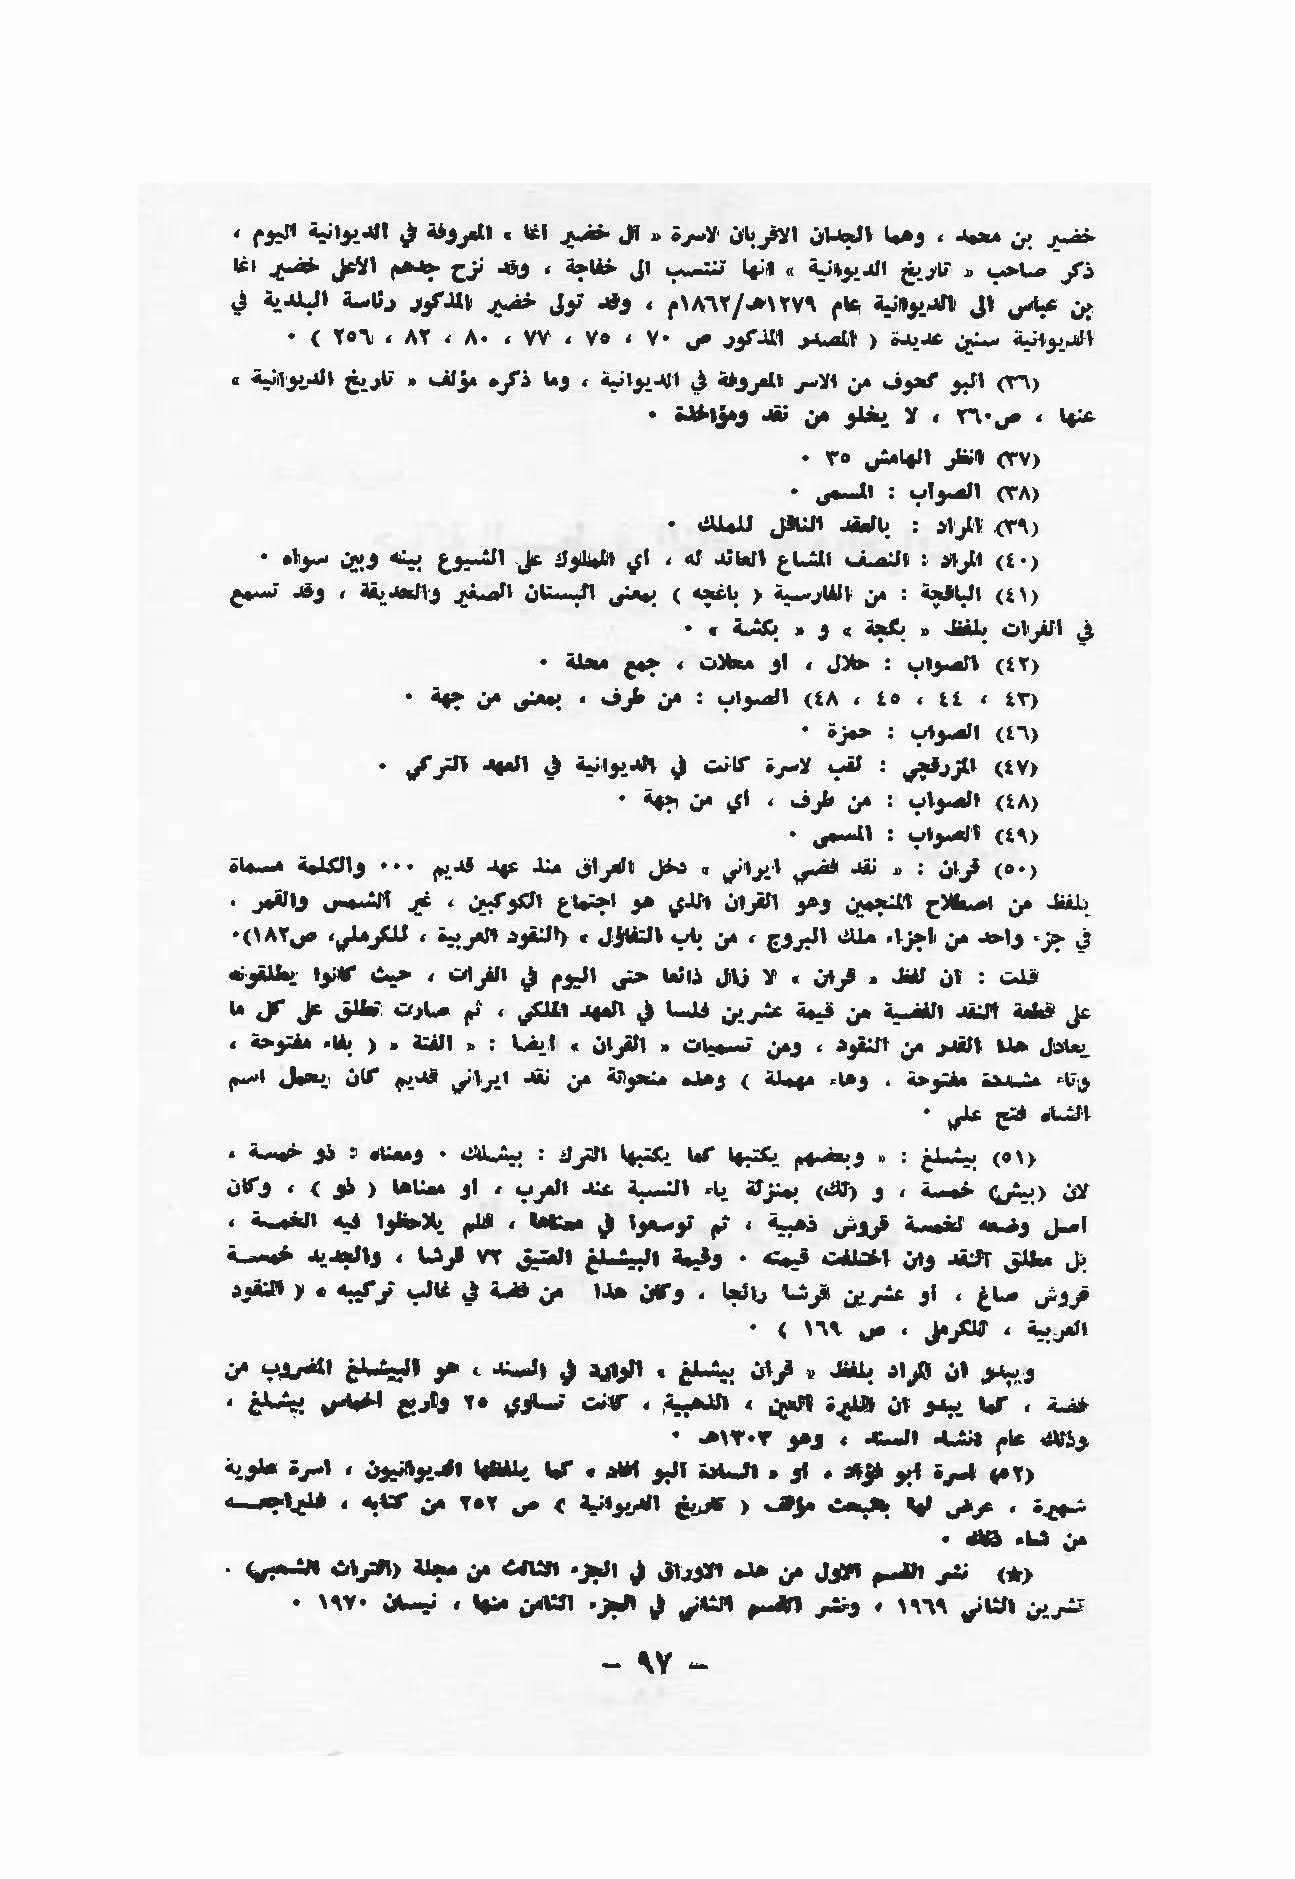 خضير بن محمد ، وهما الجدان الاقربان لاسرة « آل خضير اغا » المعروفة في الديوانية اليوم ،
ذكر صاحب « تاريخ الديوانية » انها تنتسب الى خفاجة ، وقد نزح جدهم الأعلى خضير اغا
بن عباس الى الديوانية عام ١٢٧٩هـ/١٨٦٢م ، وقد تولى خضير المذكور رئاسة البلدية في
الديوانية سنين عديدة ( المصدر المذكور ص ٧٠ ، ٧٥ ، ٧٧ ، ٨٠ ، ٨٢ ، ٢٥٦ ) ٠
(٣٦) البو كحوف من الاسر المعروفة في الديوانية ، وما ذكره مؤلف « تاريخ الديوانية »
عنها ، ص٢٦٠ ، لا يخلو من نقد ومؤاخذة ٠
(٣٧) انظر الهامش ٣٥ ٠
(٣٨) الصواب : المسمى ٠
(٣٩) المراد : بالعقد الناقل للملك ٠
(٤٠) المراد : النصف المشاع العائد له ، أي المملوك على الشيوع بينه وبين سواه ٠
(٤١) الباقچة : من الفارسية ( باغچه ) بمعنى البستان الصغير والحديقة ، وقد تسمع
في الفرات بلفظ « بگجة » و « بكشة » ٠
(٤٢) الصواب : حلال ، او محلات ، جمع محلة ٠
(٤٣ ، ٤٤ ، ٤٥ ، ٤٨) الصواب : من طرف ، بمعنى من جهة ٠
(٤٦) الصواب : حمزة ٠
(٤٧) المزرقچي : لقب لاسرة كانت في الديوانية في العهد التركي ٠
(٤٨) الصواب : من طرف ، أي من جهة ٠
(٤٩) الصواب : المسمى ٠
(٥٠) قران : « نقد فضي ايراني » دخل العراق منذ عهد قديم ٠٠٠ والكلمة مسماة
بلفظ من اصطلاح المنجمين وهو القران الذي هو اجتماع الكوكبين ، غير الشمس والقمر ،
في جزء واحد من اجزاء فلك البروج ، من باب التفاؤل » (النقود العربية ، للكرملي، ص١٨٢)٠
قلت : ان لفظ « قران » لا زال ذائعا حتى اليوم في الفرات ، حيث كانوا يطلقونه
على قطعة النقد الفضية من قيمة عشرين فلسا في العهد الملكي ، ثم صارت تطلق على كل ما
يعادل هذا القدر من النقود ، ومن تسميات « القران » ايضا : « الفتة » ( بفاء مفتوحة ،
وتاء مشددة مفتوحة ، وهاء مهملة ) وهذه منحوتة من نقد ايراني قديم كان يحمل اسم
الشاه فتح علي ٠
(٥١) بيشلغ : « وبعضهم يكتبها كما يكتبها الترك : بيشلك ٠ ومعناه : ذو خمسة ،
لان (بيش) خمسة ، و (لك) بمنزلة ياء النسبة عند العرب ، او معناها ( ذو ) ، وكان
اصل وضعه لخمسة قروش ذهبية ، ثم توسعوا في معناها ، فلم يلاحظوا فيه الخمسة ،
بل مطلق النقد وان اختلفت قيمته ٠ وقيمة البيشلغ العتيق ٧٣ قرشا ، والجديد خمسة
قروش صاغ ، أو عشرين قرشا رائجا ، وكان هذا من فضة في غالب تركيبه » ( النقود
العربية ، للكرملي ، ص ١٦٩ ) ٠
ويبدو ان المراد بلفظ « قران بيشلغ » الوارد في السند ، هو البيشلغ المضروب من
فضة ، كما يبدو ان الليرة العين ، الذهبية ، كانت تساوي ٢٥ واربع اخماس بيشلغ ،
وذلك عام انشاء السند ، وهو ١٣٠٣هـ ٠
(٥٢) اسرة أبو فؤاد ، او « السادة البو افاد » كما يلفظها الديوانيون ، اسرة علوية
شهيرة ، عرض لها بالبحث مؤلف ( تاريخ الديوانية ) ص ٢٥٢ من كتابه ، فليراجعه
من شاء ذلك ٠
(★) نشر القسم الاول من هذه الاوراق في الجزء الثالث من مجلة (التراث الشعبي) ،
تشرين الثاني ١٩٦٩ ، ونشر القسم الثاني في الجزء الثامن منها ، نيسان ١٩٧٠ ٠
– ٩٧ –